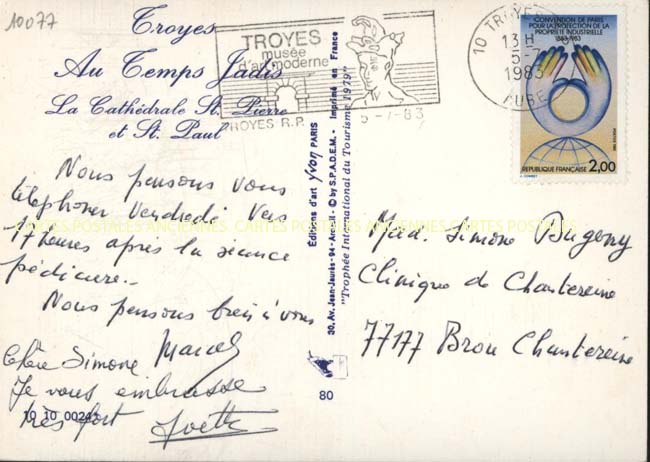 10077
Troyes
Au Temps Jadis
La Cathédrale St. Pierre
et St. Paul
TROYES
musée
d'art moderne
TROYES R.P.
5-7-83
10 TROYES
13H
5-7
1983
AUBE
CONVENTION DE PARIS
POUR LA PROTECTION DE LA
PROPRIÉTÉ INDUSTRIELLE
1883-1983
2,00
RÉPUBLIQUE FRANÇAISE
Nous pensons vous
téléphoner Vendredi vers
17 heures après la séance
pédicure..
Nous pensons bien à vous
Marcel
Chère Simone
Je vous embrasse
très fort Yvette
10 10 0024
Éditions d'art Yvon PARIS
30, Av. Jean-Jaurès - 94 - Arcueil - © by S.P.A.D.E.M. - Imprimé en France
"Trophée International du Tourisme 1979"
80
Mad. Simone
Clinique de Chantereine
77177 Brou Chantereine
CARTES POSTALES ANCIENNES CARTES POSTALES ANCIENNES CARTES POSTALES ANCIENNES